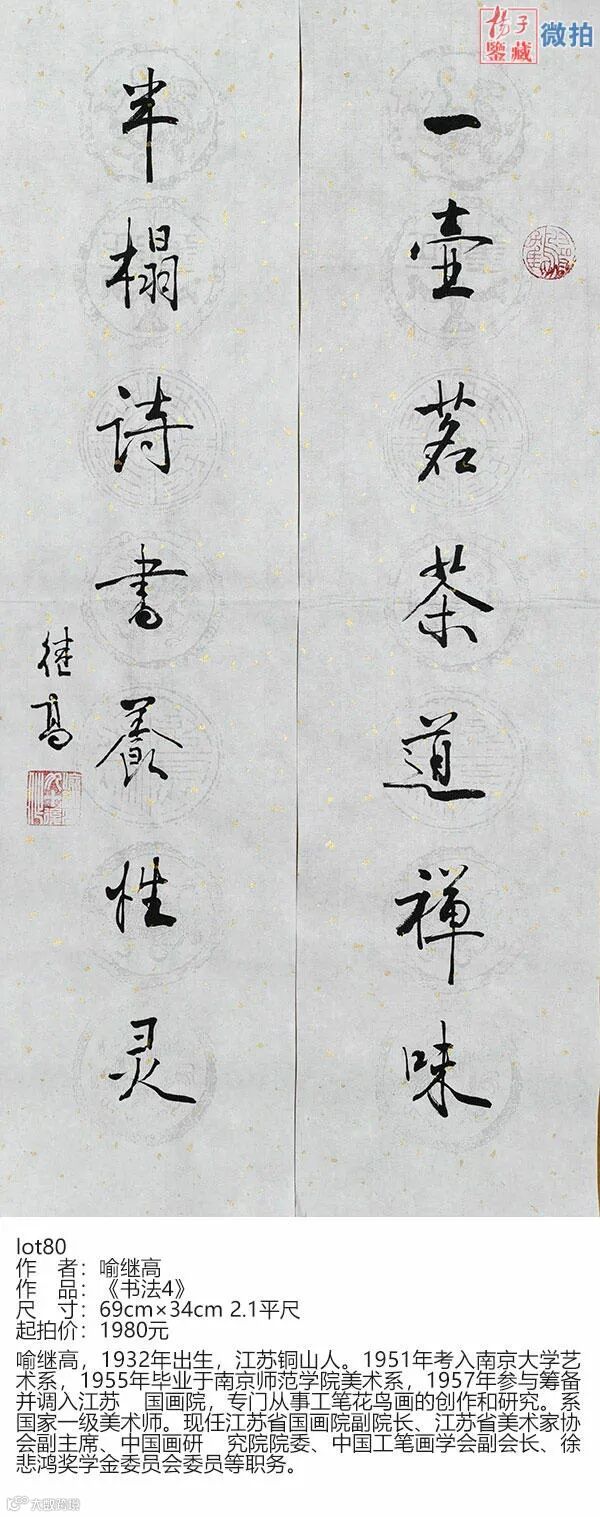 揚子
鑒藏
微拍
一壶茗茶道禅味
半榻诗书养性灵
继高
lot80
作 者：喻继高
作 品：《书法4》
尺 寸：69cm×34cm 2.1平尺
起拍价：1980元
喻继高，1932年出生，江苏铜山人。1951年考入南京大学艺
术系，1955年毕业于南京师范学院美术系，1957年参与筹备
并调入江苏 国画院，专门从事工笔花鸟画的创作和研究。系
国家一级美术师。现任江苏省国画院副院长、江苏省美术家协
会副主席、中国画研 究院院委、中国工笔画学会副会长、徐
悲鸿奖学金委员会委员等职务。
大歐跨境